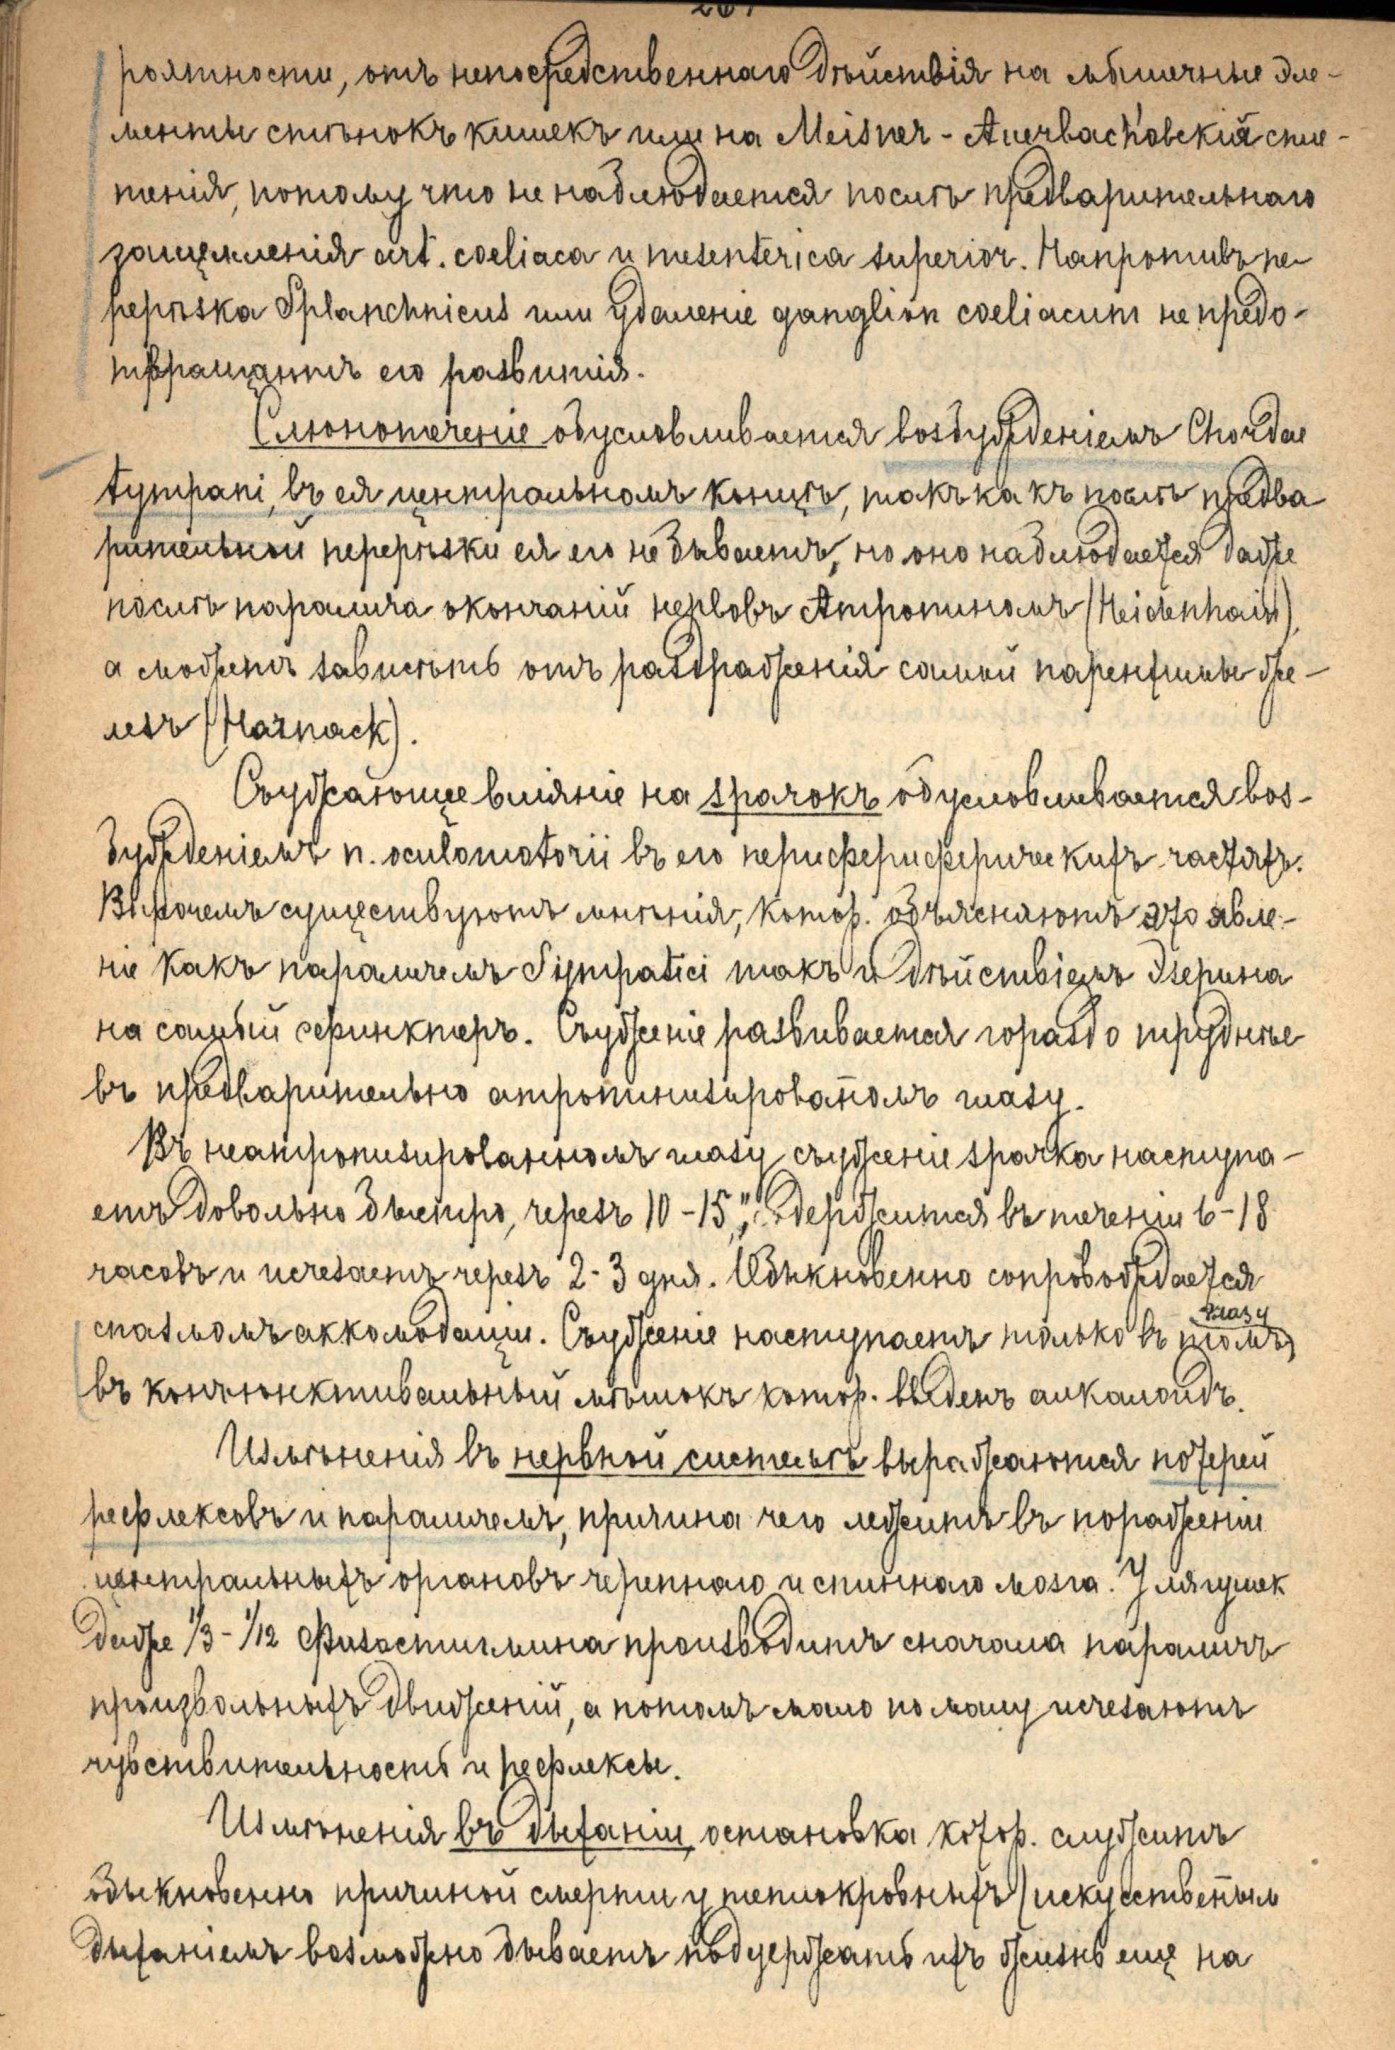 роятности, отъ непосредственнаго дѣйствія на мышечные эле-
менты стѣнокъ кишекъ или на Meisner-Auerbach'овскія спле-
тенія, потому что не наблюдается послѣ предварительнаго
защемленія art. coeliaca и mesenterica superior. Напротивъ пе-
рерѣзка Splanchnicus или удаленіе ganglion coeliacum не предо-
твращаютъ его развитія.
Слюнотеченіе обусловливается возбужденіемъ Chordae
tympani, въ ея центральномъ концѣ, такъ какъ послѣ предва
рительной перерѣзки ея его не бываетъ, но оно наблюдается даже
послѣ паралича окончаній нервовъ Атропиномъ (Heidenhain),
а можетъ зависѣть отъ раздраженія самой паренхимы же-
лезъ (Harnack).
Съуживающее вліяніе на зрачокъ обусловливается воз-
бужденіемъ n. oculomotorii въ его перисферисферическихъ частяхъ.
Впрочемъ существуютъ мнѣнія, котор. объясняютъ это явле-
ніе какъ параличемъ Sympatici такъ и дѣйствіемъ Эзерина
на самый сфинктеръ. Съуженіе развивается гораздо труднѣе
въ предварительно атропинизированномъ глазу.
Въ неатропизированномъ глазу съуженіе зрачка наступа-
етъ довольно быстро, черезъ 10-15", держится въ теченіи 6-18
часовъ и исчезаетъ черезъ 2-3 дня. Обыкновенно сопровождается
спазмомъ аккомодаціи. Съуженіе наступаетъ только въ томъ глазу,
въ конъюнктивальный мѣшокъ котор. введенъ алкалоидъ.
Измѣненія въ нервной системѣ выражаются потерей
рефлексовъ и параличемъ, причина чего лежитъ въ пораженіи
центральныхъ органовъ черепнаго и спиннаго мозга. У лягушек
даже 1/3-1/12 Физостигмина производитъ сначала параличъ
произвольныхъ движеній, а потомъ мало по малу исчезаютъ
чувствительность и рефлексы.
Измѣненія въ дыханіи, остановка котор. служитъ
обыкновенно причиной смерти у теплокровныхъ (искусственнымъ
дыханіемъ возможно бываетъ поддержать ихъ жизнь ещё на